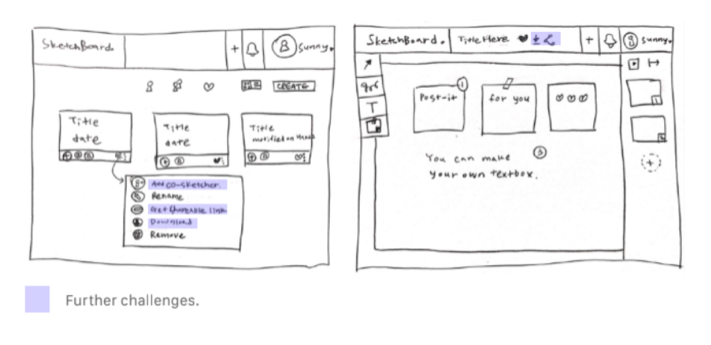 SketchBoard.
+
sunny.
CREATE
Title
date
Title
date
Title
modified on
Add co-sketcher.
Rename
Get shareable link
Download
Remove
SketchBoard.
Title Here
+
sunny.
T
Post-it
for you
You can make
your own textbox.
Further challenges.